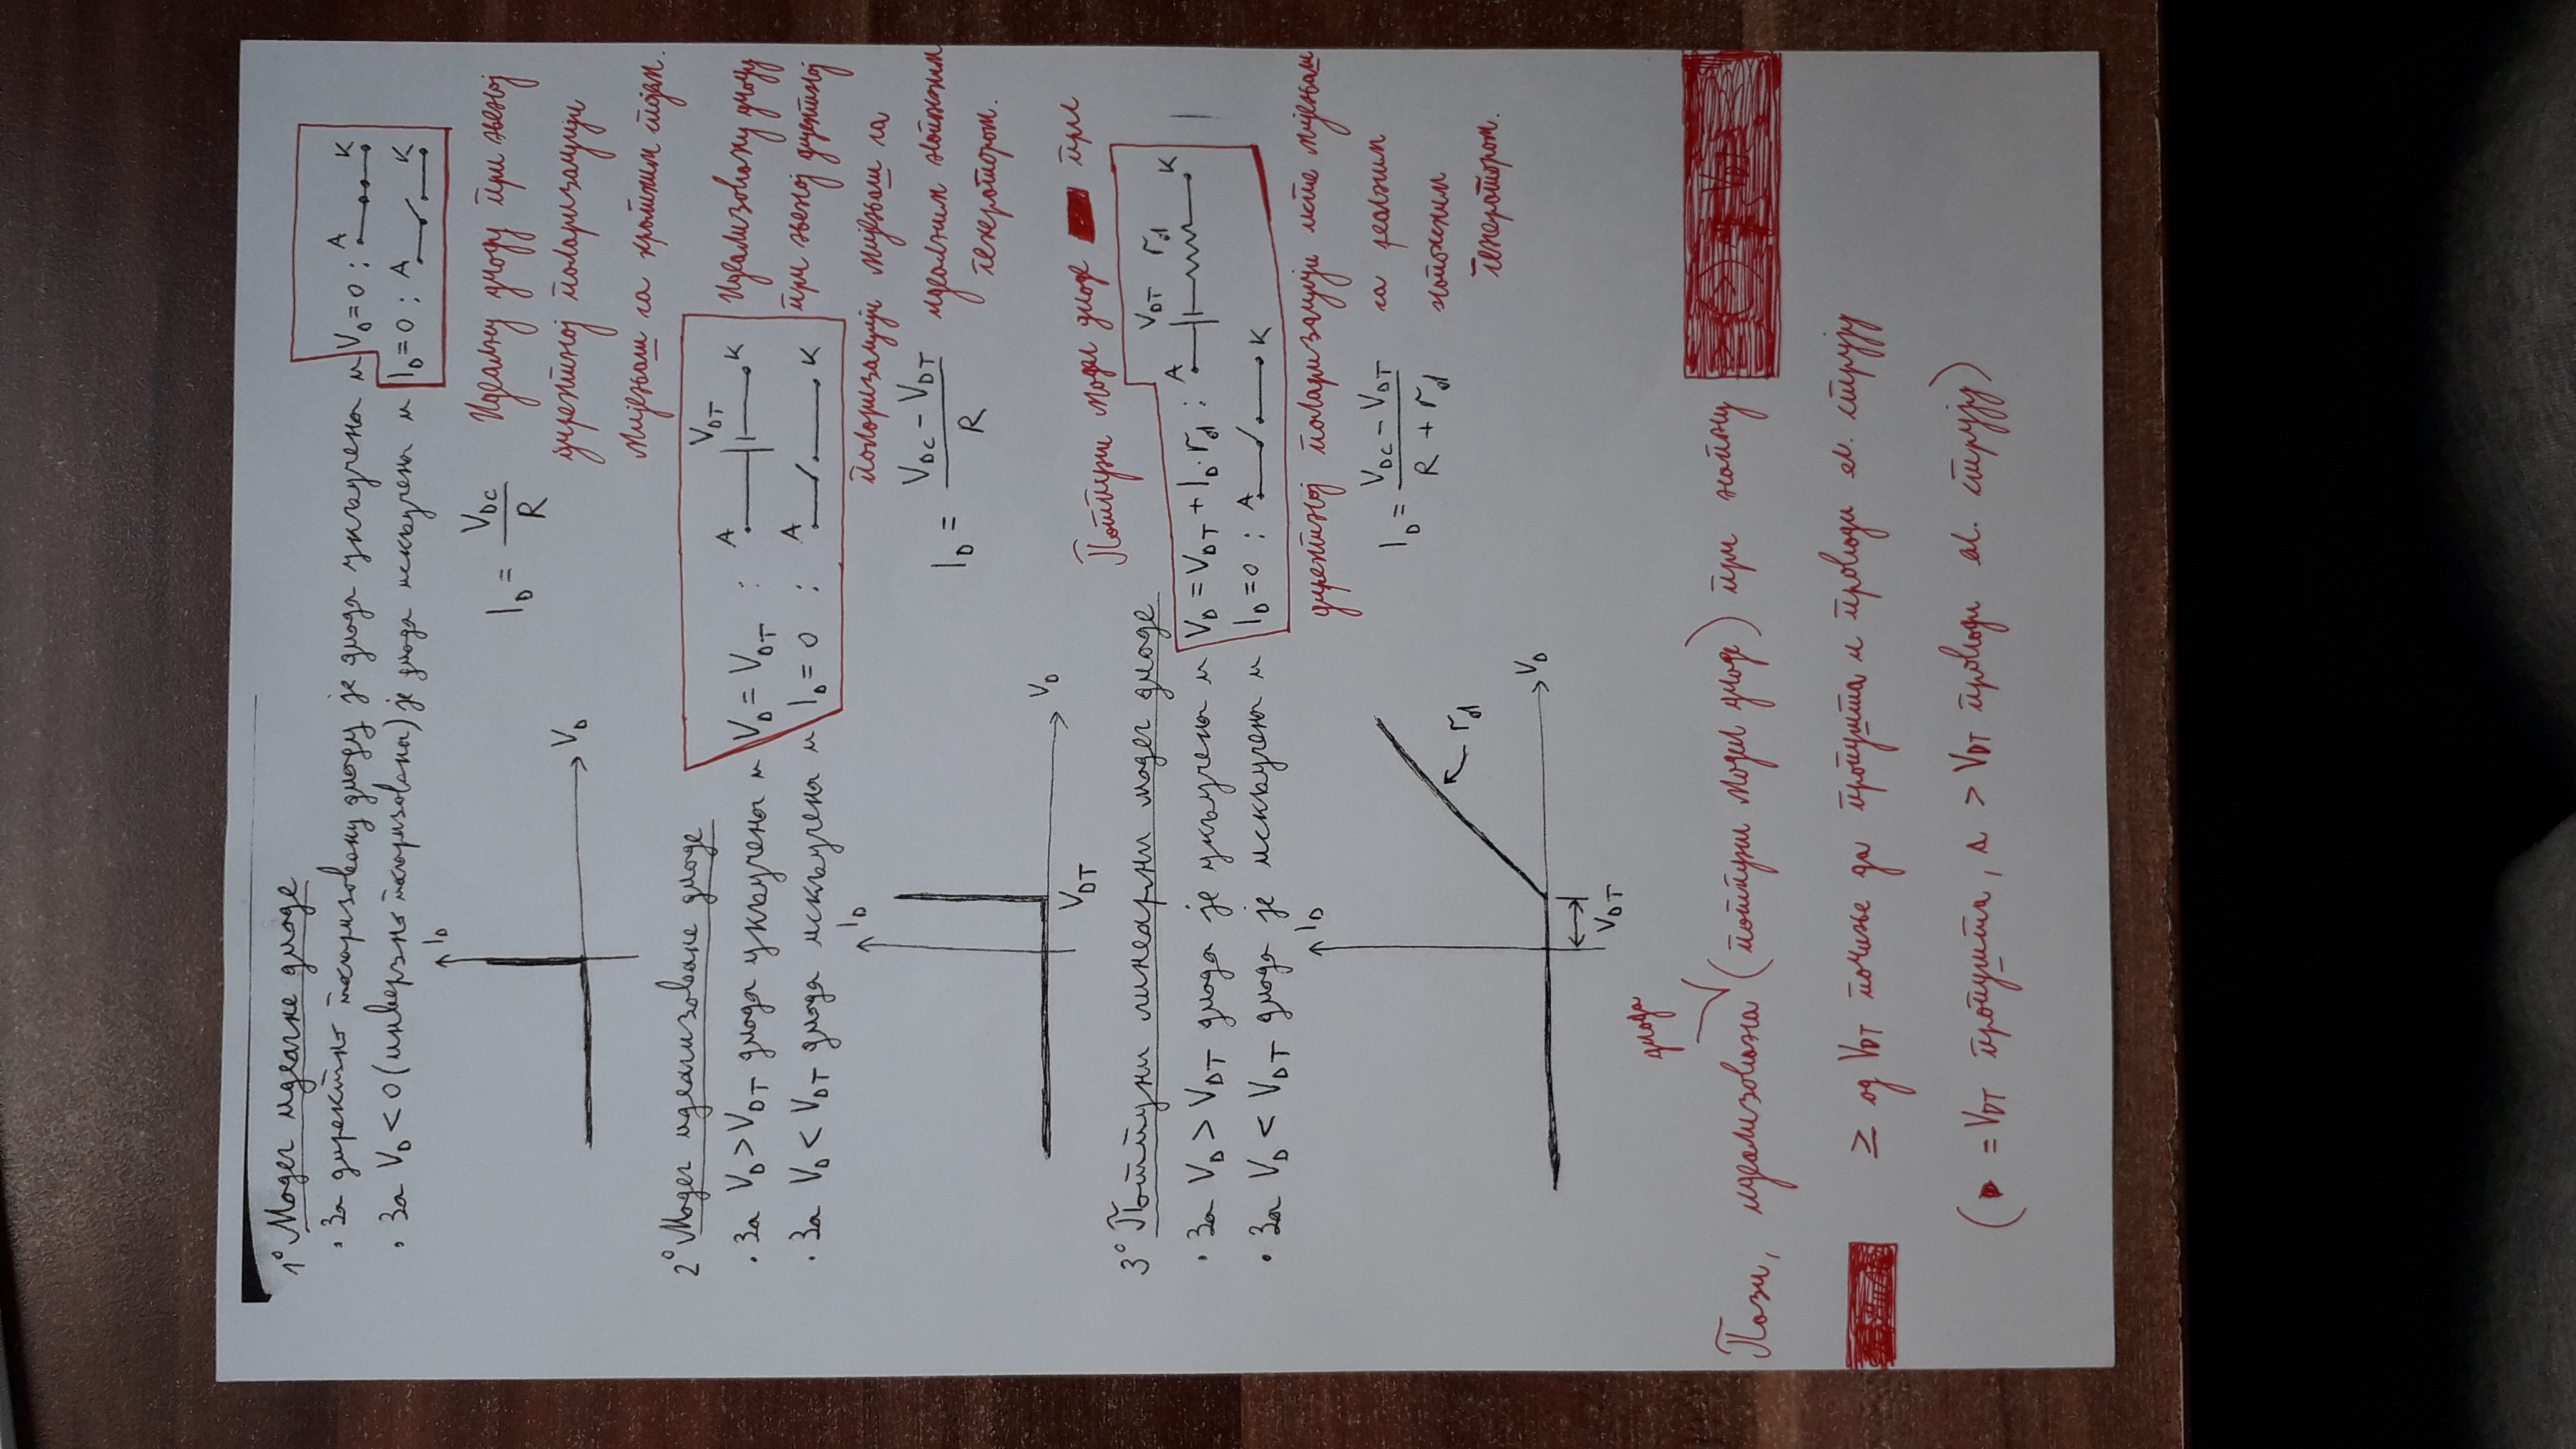 1° Модел идеалне диоде
• За директно поларизовану диоду је диода укључена и V_D = 0 : A K
• За V_D < 0 (инверзно поларизована) је диода искључена и I_D = 0 : A K
I_D
V_D
I_D = V_DC / R
Идеалну диоду при њеној
директној поларизацији
мијењаш са кратким спојем.
2° Модел идеализоване диоде
• За V_D > V_DT диода укључена и V_D = V_DT : A V_DT K
• За V_D < V_DT диода искључена и I_D = 0 : A K
Идеализовану диоду
при њеној директној
поларизацији мијењаш са
идеалним напонским
генератором.
I_D
V_D
V_DT
I_D = (V_DC - V_DT) / R
3° Потпуни линеарни модел диоде
• За V_D > V_DT диода је укључена и V_D = V_DT + I_D · r_d : A V_DT r_d K
• За V_D < V_DT диода је искључена и I_D = 0 : A K
Потпуни модел диоде при
директној поларизацији исте мијењаш
са реалним
напонским
генератором.
I_D
r_d
V_D
V_DT
I_D = (V_DC - V_DT) / (R + r_d)
диода
Пази, идеализована (потпуни модел диоде) при напону
≥ од V_DT почиње да пропушта и проводи ел. струју
(= V_DT пропушта, а > V_DT проводи ел. струју)